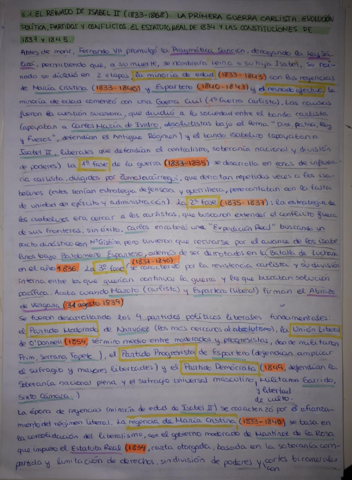 EL REINADO DE ISABEL II (1833-1868). LA PRIMERA GUERRA CARLISTA. EVOLUCIÓN
POLÍTICA, PARTIDOS Y CONFLICTOS. EL ESTATUTO REAL DE 1834 Y LAS CONSTITUCIONES DE
1837 Y 1845.
Antes de morir, Fernando VII promulgó la Pragmática Sanción, derogando la Ley
permitiendo que, a su muerte, se nombrara heredera a su hija Isabel, su rei-
nado se dividió en 2 etapas, la minoría de edad (1833-1843) con las regencias
de María Cristina (1833-1840) y Espartero (1840-1843) y el reinado efectivo. la
minoría de edad comenzó con una Guerra Civil (1ª Guerra Carlista). Las causas
fueron la cuestión sucesoria, que dividió a la sociedad entre el bando carlista
(apoyaban a Carlos María de Isidro, absolutistas bajo el lema "Dios, Patria, Rey
y Fueros", defendían el Antiguo Régimen) y el bando isabelino (apoyaban a
Isabel II, liberales que defendían el centralismo, soberanía nacional y división
de poderes). La 1ª fase de la guerra (1833-1835) se desarrolla en
carlista, dirigidos por Zumalacárregui, que derrotan repetidas veces a los isa-
belinos (estos tenían estrategia defensiva y
de unidad de ejército y administración). La 2ª fase (1835-1837): la estrategia de
los isabelinos era cercar a los carlistas, que buscaron extender el conflicto fuera
de sus fronteras, sin éxito. Carlos encabezó una "Expedición Real" buscando un
pacto dinástico con Mª Cristina pero tuvieron que retirarse por el avance de las
Baldomero Espartero, además de ser derrotados en la Batalla de Luchana
en el año 1836. La 3ª fase (1837-1840) se caracterizó por la resistencia carlista y su división
interna entre los que querían continuar la guerra y los que buscaban solución
pacífica. Acaba cuando Maroto (carlista) y Espartero (liberal) firman el Abrazo
de Vergara (31 agosto 1839)
Se fueron desarrollando los 4 partidos políticos liberales fundamentales:
el Partido Moderado de Narváez (los más cercanos al absolutismo), la Unión Liberal
de O'Donnell (1854, término medio entre moderados y progresistas, donde militaban
Prim, Serrano, Topete), el Partido Progresista de Espartero (defendían ampliar
el sufragio y mayores libertades) y el Partido Demócrata (1849, defendían la
soberanía nacional plena y el sufragio universal masculino, militaban Garrido,
Sixto Cámara) y libertad
de culto.
La época de regencias (minoría de edad de Isabel II) se caracterizó por el afianza-
miento del régimen liberal. La regencia de María Cristina (1833-1840) se basa en
la consolidación del liberalismo, con el gobierno moderado de Martínez de la Rosa
que impuso el Estatuto Real (1834, carta otorgada, basada en la soberanía com-
partida y limitación de derechos, sin división de poderes y cortes bicamerales